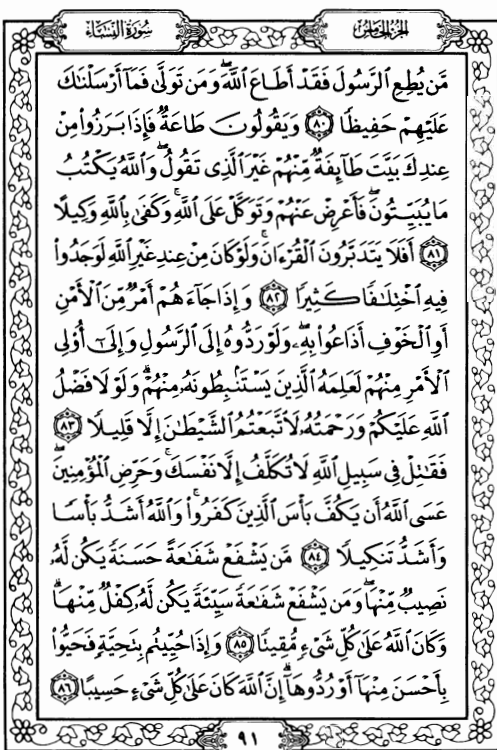 الجزء الخامس
سورة النساء
مَّن يُطِعِ ٱلرَّسُولَ فَقَدْ أَطَاعَ ٱللَّهَۖ وَمَن تَوَلَّىٰ فَمَآ أَرْسَلْنَٰكَ
عَلَيْهِمْ حَفِيظًا ٨٠ وَيَقُولُونَ طَاعَةٌ فَإِذَا بَرَزُوا۟ مِنْ
عِندِكَ بَيَّتَ طَآئِفَةٌ مِّنْهُمْ غَيْرَ ٱلَّذِى تَقُولُۖ وَٱللَّهُ يَكْتُبُ
مَا يُبَيِّتُونَۖ فَأَعْرِضْ عَنْهُمْ وَتَوَكَّلْ عَلَى ٱللَّهِۚ وَكَفَىٰ بِٱللَّهِ وَكِيلًا
٨١ أَفَلَا يَتَدَبَّرُونَ ٱلْقُرْءَانَۚ وَلَوْ كَانَ مِنْ عِندِ غَيْرِ ٱللَّهِ لَوَجَدُوا۟
فِيهِ ٱخْتِلَٰفًا كَثِيرًا ٨٢ وَإِذَا جَآءَهُمْ أَمْرٌ مِّنَ ٱلْأَمْنِ
أَوِ ٱلْخَوْفِ أَذَاعُوا۟ بِهِۦۖ وَلَوْ رَدُّوهُ إِلَى ٱلرَّسُولِ وَإِلَىٰٓ أُو۟لِى
ٱلْأَمْرِ مِنْهُمْ لَعَلِمَهُ ٱلَّذِينَ يَسْتَنۢبِطُونَهُۥ مِنْهُمْۗ وَلَوْلَا فَضْلُ
ٱللَّهِ عَلَيْكُمْ وَرَحْمَتُهُۥ لَٱتَّبَعْتُمُ ٱلشَّيْطَٰنَ إِلَّا قَلِيلًا ٨٣
فَقَٰتِلْ فِى سَبِيلِ ٱللَّهِ لَا تُكَلَّفُ إِلَّا نَفْسَكَۚ وَحَرِّضِ ٱلْمُؤْمِنِينَۖ
عَسَى ٱللَّهُ أَن يَكُفَّ بَأْسَ ٱلَّذِينَ كَفَرُوا۟ۚ وَٱللَّهُ أَشَدُّ بَأْسًا
وَأَشَدُّ تَنكِيلًا ٨٤ مَّن يَشْفَعْ شَفَٰعَةً حَسَنَةً يَكُن لَّهُۥ
نَصِيبٌ مِّنْهَاۖ وَمَن يَشْفَعْ شَفَٰعَةً سَيِّئَةً يَكُن لَّهُۥ كِفْلٌ مِّنْهَاۗ
وَكَانَ ٱللَّهُ عَلَىٰ كُلِّ شَىْءٍ مُّقِيتًا ٨٥ وَإِذَا حُيِّيتُم بِتَحِيَّةٍ فَحَيُّوا۟
بِأَحْسَنَ مِنْهَآ أَوْ رُدُّوهَآۗ إِنَّ ٱللَّهَ كَانَ عَلَىٰ كُلِّ شَىْءٍ حَسِيبًا ٨٦
٩١